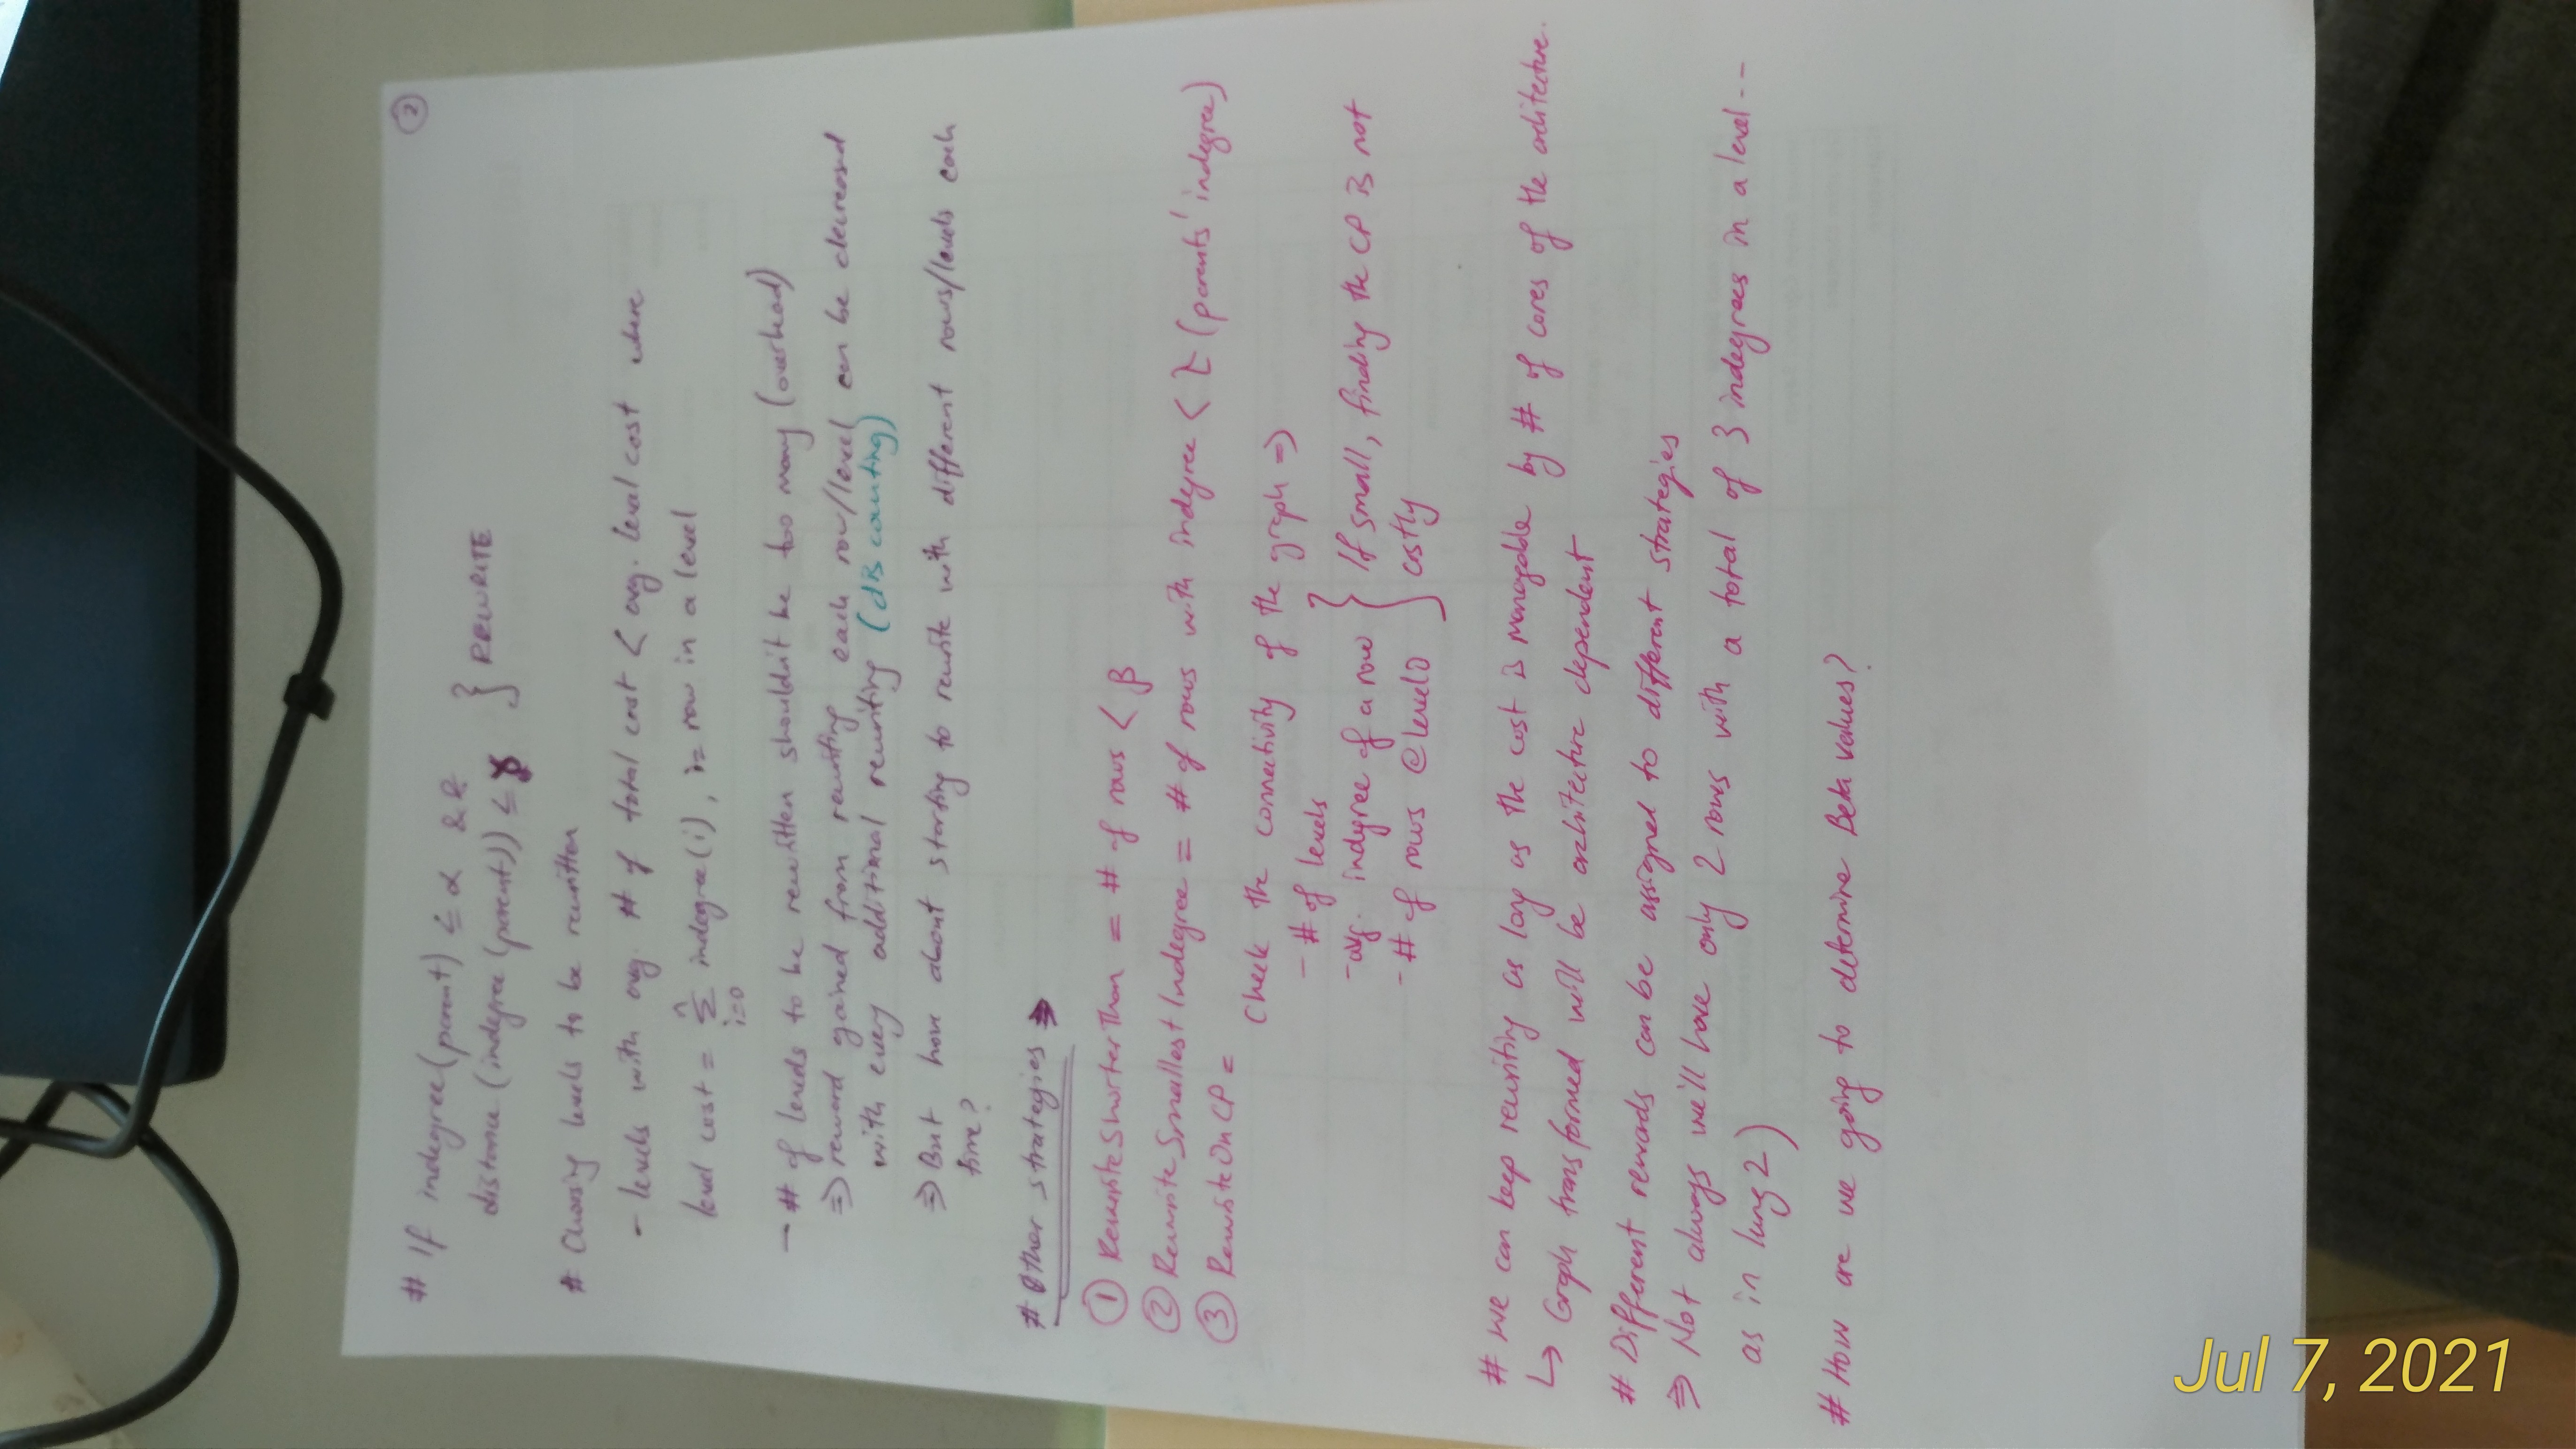 ②
# If indegree(parent) ≤ α &&
distance(indegree(parent)) ≤ γ } REWRITE
# Choosing levels to be rewritten
- levels with avg. # of total cost < avg. level cost where
level cost = Σ indegree(i), i = row in a level
i=0
- # of levels to be rewritten shouldn't be too many (overhead)
⇒ reward gained from rewriting each row/level can be decreased
with every additional rewriting (dB counting)
⇒ But how about starting to rewrite with different rows/levels each
time?
# Other strategies →
① RewriteShorterThan = # of rows < β
② RewriteSmallestIndegree = # of rows with indegree < Σ (parents' indegree)
③ RewriteOnCP =
Check the connectivity of the graph ⇒
- # of levels
- avg. indegree of a row } If small, finding the CP is not
- # of rows @level0 costly
# We can keep rewriting as long as the cost is managable by # of cores of the architecture.
↳ Graph transformed will be architecture dependent
# Different rewards can be assigned to different strategies
⇒ Not always we'll have only 2 rows with a total of 3 indegrees in a level --
as in lung2)
# How are we going to determine Beta values?
Jul 7, 2021